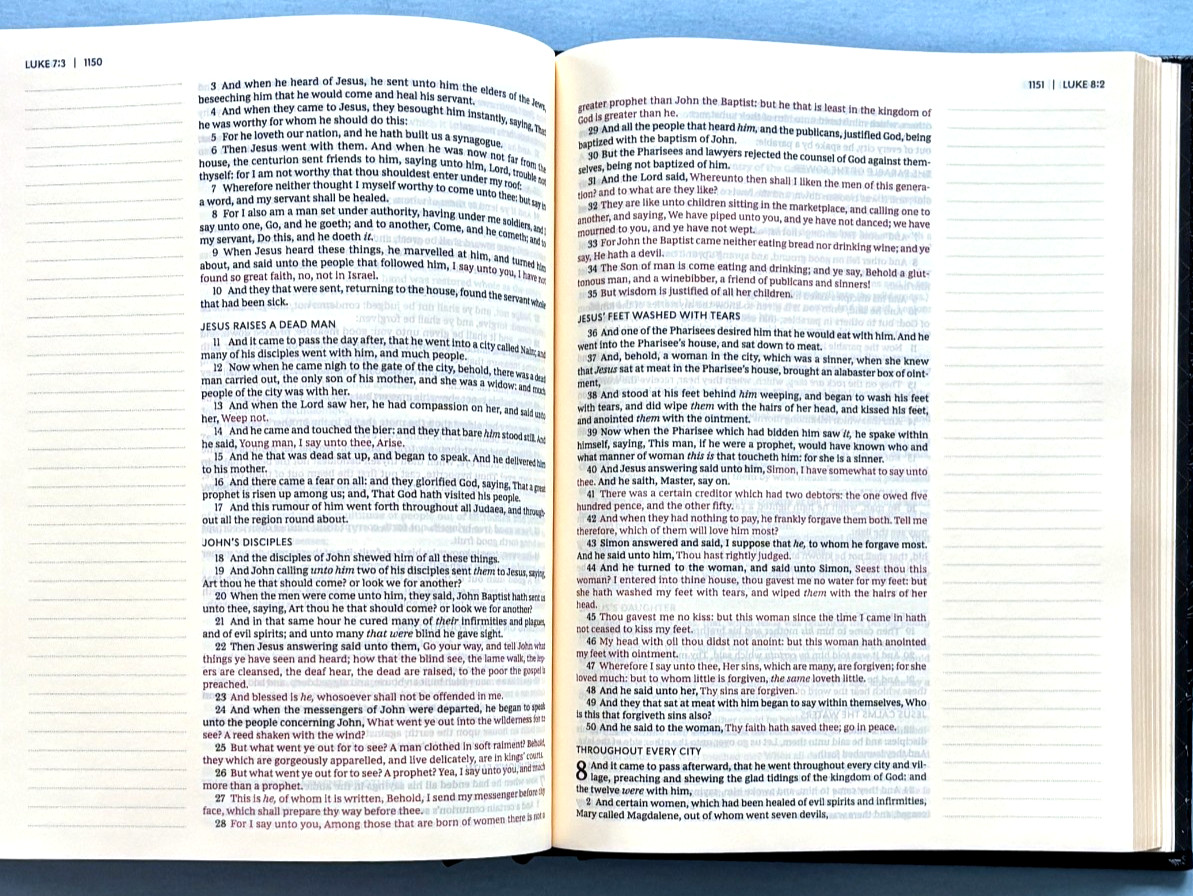 LUKE 7:3 | 1150
3 And when he heard of Jesus, he sent unto him the elders of the Jews,
beseeching him that he would come and heal his servant.
4 And when they came to Jesus, they besought him instantly, saying, That
he was worthy for whom he should do this:
5 For he loveth our nation, and he hath built us a synagogue.
6 Then Jesus went with them. And when he was now not far from the
house, the centurion sent friends to him, saying unto him, Lord, trouble not
thyself: for I am not worthy that thou shouldest enter under my roof:
7 Wherefore neither thought I myself worthy to come unto thee: but say in
a word, and my servant shall be healed.
8 For I also am a man set under authority, having under me soldiers, and I
say unto one, Go, and he goeth; and to another, Come, and he cometh; and to
my servant, Do this, and he doeth it.
9 When Jesus heard these things, he marvelled at him, and turned him
about, and said unto the people that followed him, I say unto you, I have not
found so great faith, no, not in Israel.
10 And they that were sent, returning to the house, found the servant whole
that had been sick.
JESUS RAISES A DEAD MAN
11 And it came to pass the day after, that he went into a city called Nain; and
many of his disciples went with him, and much people.
12 Now when he came nigh to the gate of the city, behold, there was a dead
man carried out, the only son of his mother, and she was a widow: and much
people of the city was with her.
13 And when the Lord saw her, he had compassion on her, and said unto
her, Weep not.
14 And he came and touched the bier: and they that bare him stood still. And
he said, Young man, I say unto thee, Arise.
15 And he that was dead sat up, and began to speak. And he delivered him
to his mother.
16 And there came a fear on all: and they glorified God, saying, That a great
prophet is risen up among us; and, That God hath visited his people.
17 And this rumour of him went forth throughout all Judaea, and through-
out all the region round about.
JOHN'S DISCIPLES
18 And the disciples of John shewed him of all these things.
19 And John calling unto him two of his disciples sent them to Jesus, saying,
Art thou he that should come? or look we for another?
20 When the men were come unto him, they said, John Baptist hath sent us
unto thee, saying, Art thou he that should come? or look we for another?
21 And in that same hour he cured many of their infirmities and plagues,
and of evil spirits; and unto many that were blind he gave sight.
22 Then Jesus answering said unto them, Go your way, and tell John what
things ye have seen and heard; how that the blind see, the lame walk, the lep-
ers are cleansed, the deaf hear, the dead are raised, to the poor the gospel is
preached.
23 And blessed is he, whosoever shall not be offended in me.
24 And when the messengers of John were departed, he began to speak
unto the people concerning John, What went ye out into the wilderness for to
see? A reed shaken with the wind?
25 But what went ye out for to see? A man clothed in soft raiment? Behold,
they which are gorgeously apparelled, and live delicately, are in kings' courts.
26 But what went ye out for to see? A prophet? Yea, I say unto you, and much
more than a prophet.
27 This is he, of whom it is written, Behold, I send my messenger before thy
face, which shall prepare thy way before thee.
28 For I say unto you, Among those that are born of women there is not a
1151 | LUKE 8:2
greater prophet than John the Baptist: but he that is least in the kingdom of
God is greater than he.
29 And all the people that heard him, and the publicans, justified God, being
baptized with the baptism of John.
30 But the Pharisees and lawyers rejected the counsel of God against them-
selves, being not baptized of him.
31 And the Lord said, Whereunto then shall I liken the men of this genera-
tion? and to what are they like?
32 They are like unto children sitting in the marketplace, and calling one to
another, and saying, We have piped unto you, and ye have not danced; we have
mourned to you, and ye have not wept.
33 For John the Baptist came neither eating bread nor drinking wine; and ye
say, He hath a devil.
34 The Son of man is come eating and drinking; and ye say, Behold a glut-
tonous man, and a winebibber, a friend of publicans and sinners!
35 But wisdom is justified of all her children.
JESUS' FEET WASHED WITH TEARS
36 And one of the Pharisees desired him that he would eat with him. And he
went into the Pharisee's house, and sat down to meat.
37 And, behold, a woman in the city, which was a sinner, when she knew
that Jesus sat at meat in the Pharisee's house, brought an alabaster box of oint-
ment,
38 And stood at his feet behind him weeping, and began to wash his feet
with tears, and did wipe them with the hairs of her head, and kissed his feet,
and anointed them with the ointment.
39 Now when the Pharisee which had bidden him saw it, he spake within
himself, saying, This man, if he were a prophet, would have known who and
what manner of woman this is that toucheth him: for she is a sinner.
40 And Jesus answering said unto him, Simon, I have somewhat to say unto
thee. And he saith, Master, say on.
41 There was a certain creditor which had two debtors: the one owed five
hundred pence, and the other fifty.
42 And when they had nothing to pay, he frankly forgave them both. Tell me
therefore, which of them will love him most?
43 Simon answered and said, I suppose that he, to whom he forgave most.
And he said unto him, Thou hast rightly judged.
44 And he turned to the woman, and said unto Simon, Seest thou this
woman? I entered into thine house, thou gavest me no water for my feet: but
she hath washed my feet with tears, and wiped them with the hairs of her
head.
45 Thou gavest me no kiss: but this woman since the time I came in hath
not ceased to kiss my feet.
46 My head with oil thou didst not anoint: but this woman hath anointed
my feet with ointment.
47 Wherefore I say unto thee, Her sins, which are many, are forgiven; for she
loved much: but to whom little is forgiven, the same loveth little.
48 And he said unto her, Thy sins are forgiven.
49 And they that sat at meat with him began to say within themselves, Who
is this that forgiveth sins also?
50 And he said to the woman, Thy faith hath saved thee; go in peace.
THROUGHOUT EVERY CITY
8 And it came to pass afterward, that he went throughout every city and vil-
lage, preaching and shewing the glad tidings of the kingdom of God: and
the twelve were with him,
2 And certain women, which had been healed of evil spirits and infirmities,
Mary called Magdalene, out of whom went seven devils,